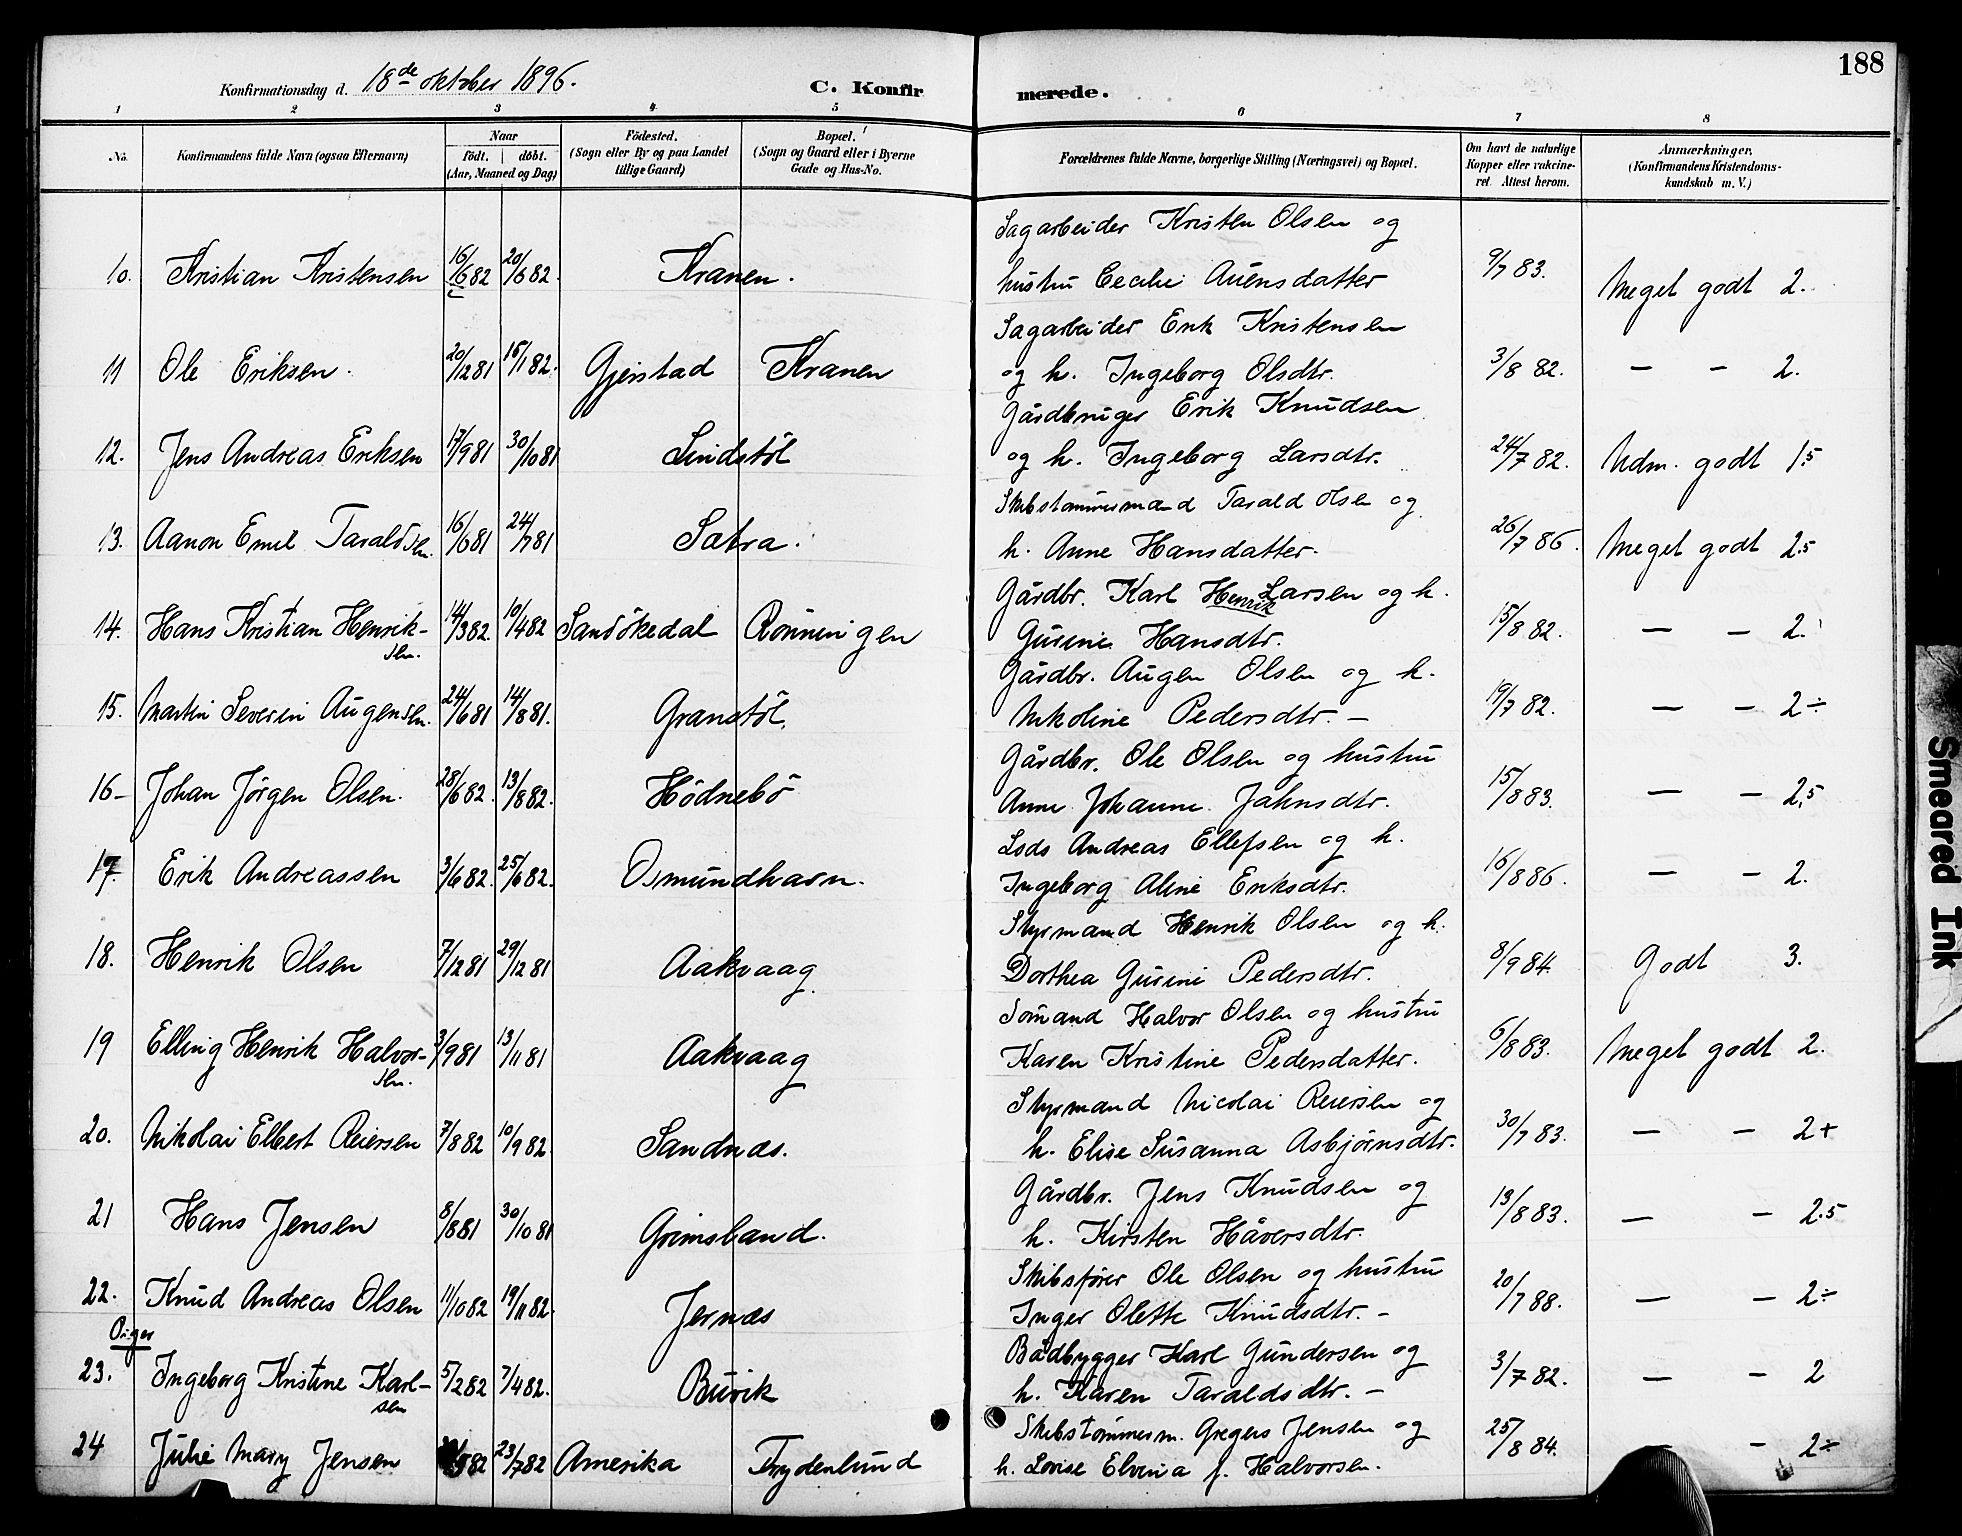 188
Konfirmationsdag d. 18de oktober 1896.
C. Konfirmerede.
1 2 3 4 5 6 7 8
No. Konfirmandens fulde Navn (ogsaa Efternavn) Naar födt. döbt. (Aar, Maaned og Dag) Födested. (Sogn eller By og paa Landet tillige Gaard) Bopæl. (Sogn og Gaard eller i Byerne Gade og Hus-No. Forældrenes fulde Navne, borgerlige Stilling (Næringsvei) og Bopæl. Om havt de naturlige Kopper eller vakcineret. Attest herom. Anmærkninger, (Konfirmandens Kristendomskundskab m. V.)
Sagarbeider Kristen Olsen og
10. Kristian Kristensen 16/6 82 20/6 82. Kranen. hustru Cecilie Auensdatter 9/7 83. Meget godt 2.
Sagarbeider Erik Kristensen
11 Ole Eriksen. 20/12 81 15/1 82. Gjerstad Kranen og h. Ingeborg Olsdtr. 3/8 82. — - 2.
Gårdbruger Erik Knudsen
12. Jens Andreas Eriksen 17/9 81 30/10 81 Lindstöl og h. Ingeborg Larsdtr. 24/7 82. Udm. godt 1.5
Skibstømmermand Tarald Olsen og
13. Aanon Emil Taraldsen. 16/6 81 24/7 81 Sætra. h. Anne Hansdatter. 26/7 86. Meget godt 2.5
Gårdbr. Karl Henrik Larsen og h.
14. Hans Kristian Henriksen. 14/3 82 10/4 82 Sandökedal Rönningen Gurine Hansdtr. 15/8 82. — - 2.
Gårdbr. Augen Olsen og h.
15. Martin Severin Augensen. 24/6 81 14/8 81. Granstöl. Nikoline Pedersdtr. - 19/7 82. — - 2÷
Gårdbr. Ole Olsen og hustru
16- Johan Jörgen Olsen. 28/6 82. 13/8 82. Hödnebö Anne Johanne Jahnsdtr. 15/8 83. — - 2,5
Lods Andreas Ellefsen og h.
17. Erik Andreassen 3/6 82. 25/6 82. Osmundhavn. Ingeborg Aline Eriksdtr. 16/8 86. — - 2.
Styrmand Henrik Olsen og h.
18. Henrik Olsen 7/12 81 29/12 81 Aakvaag Dorthea Gurine Pedersdtr. 8/9 84. Godt 3.
Sömand Halvor Olsen og hustru
19 Elling Henrik Halvorsen. 3/9 81 13/11 81 Aakvaag Karen Kristine Pedersdatter. 6/8 83. Meget godt 2.
Styrmand Nicolai Reiersen og
20. Nikolai Elbert Reiersen 7/8 82 10/9 82. Sandnæs. h. Elise Susanna Asbjørnsdtr. 30/7 83. — - 2+
Gårdbr. Jens Knudsen og
21 Hans Jensen 8/8 81 30/10 81 Grimsland. h. Kirsten Håversdtr. 13/8 83. — - 2.5
Skibsfører Ole Olsen og hustru
22. Knud Andreas Olsen 11/10 82 19/11 82. Jernæs Inger Olette Knudsdtr. - 20/7 88. — - 2÷
Piger
Bådbygger Karl Gundersen og
23. Ingeborg Kristine Karlsen 5/2 82 7/4 82. Buvik h. Karen Taraldsdtr. - 3/7 82. — - 2
Skibstømmerm. Gregers Jensen og
24 Julie Mary Jensen 82 23/7 82 Amerika Frydenlund h. Lovise Elvina f. Halvorsen. 25/8 84. - - 2÷
Smeared Ink